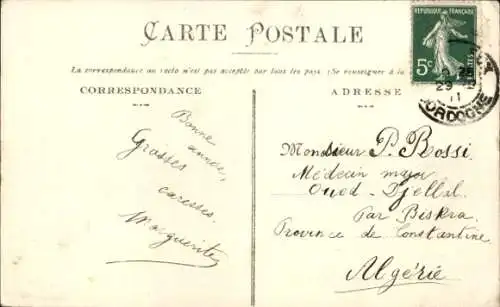 CARTE POSTALE
La correspondance au recto n'est pas acceptée par tous les pays. (Se renseigner à la
CORRESPONDANCE
ADRESSE
RÉPUBLIQUE FRANÇAISE
5c
POSTES
29
11
DORDOGNE
Bonne année,
Grosses
caresses.
Marguerite
Monsieur P. Bossi.
Médecin major
Oued-Djellal.
Par Biskra.
Province de Constantine
Algérie